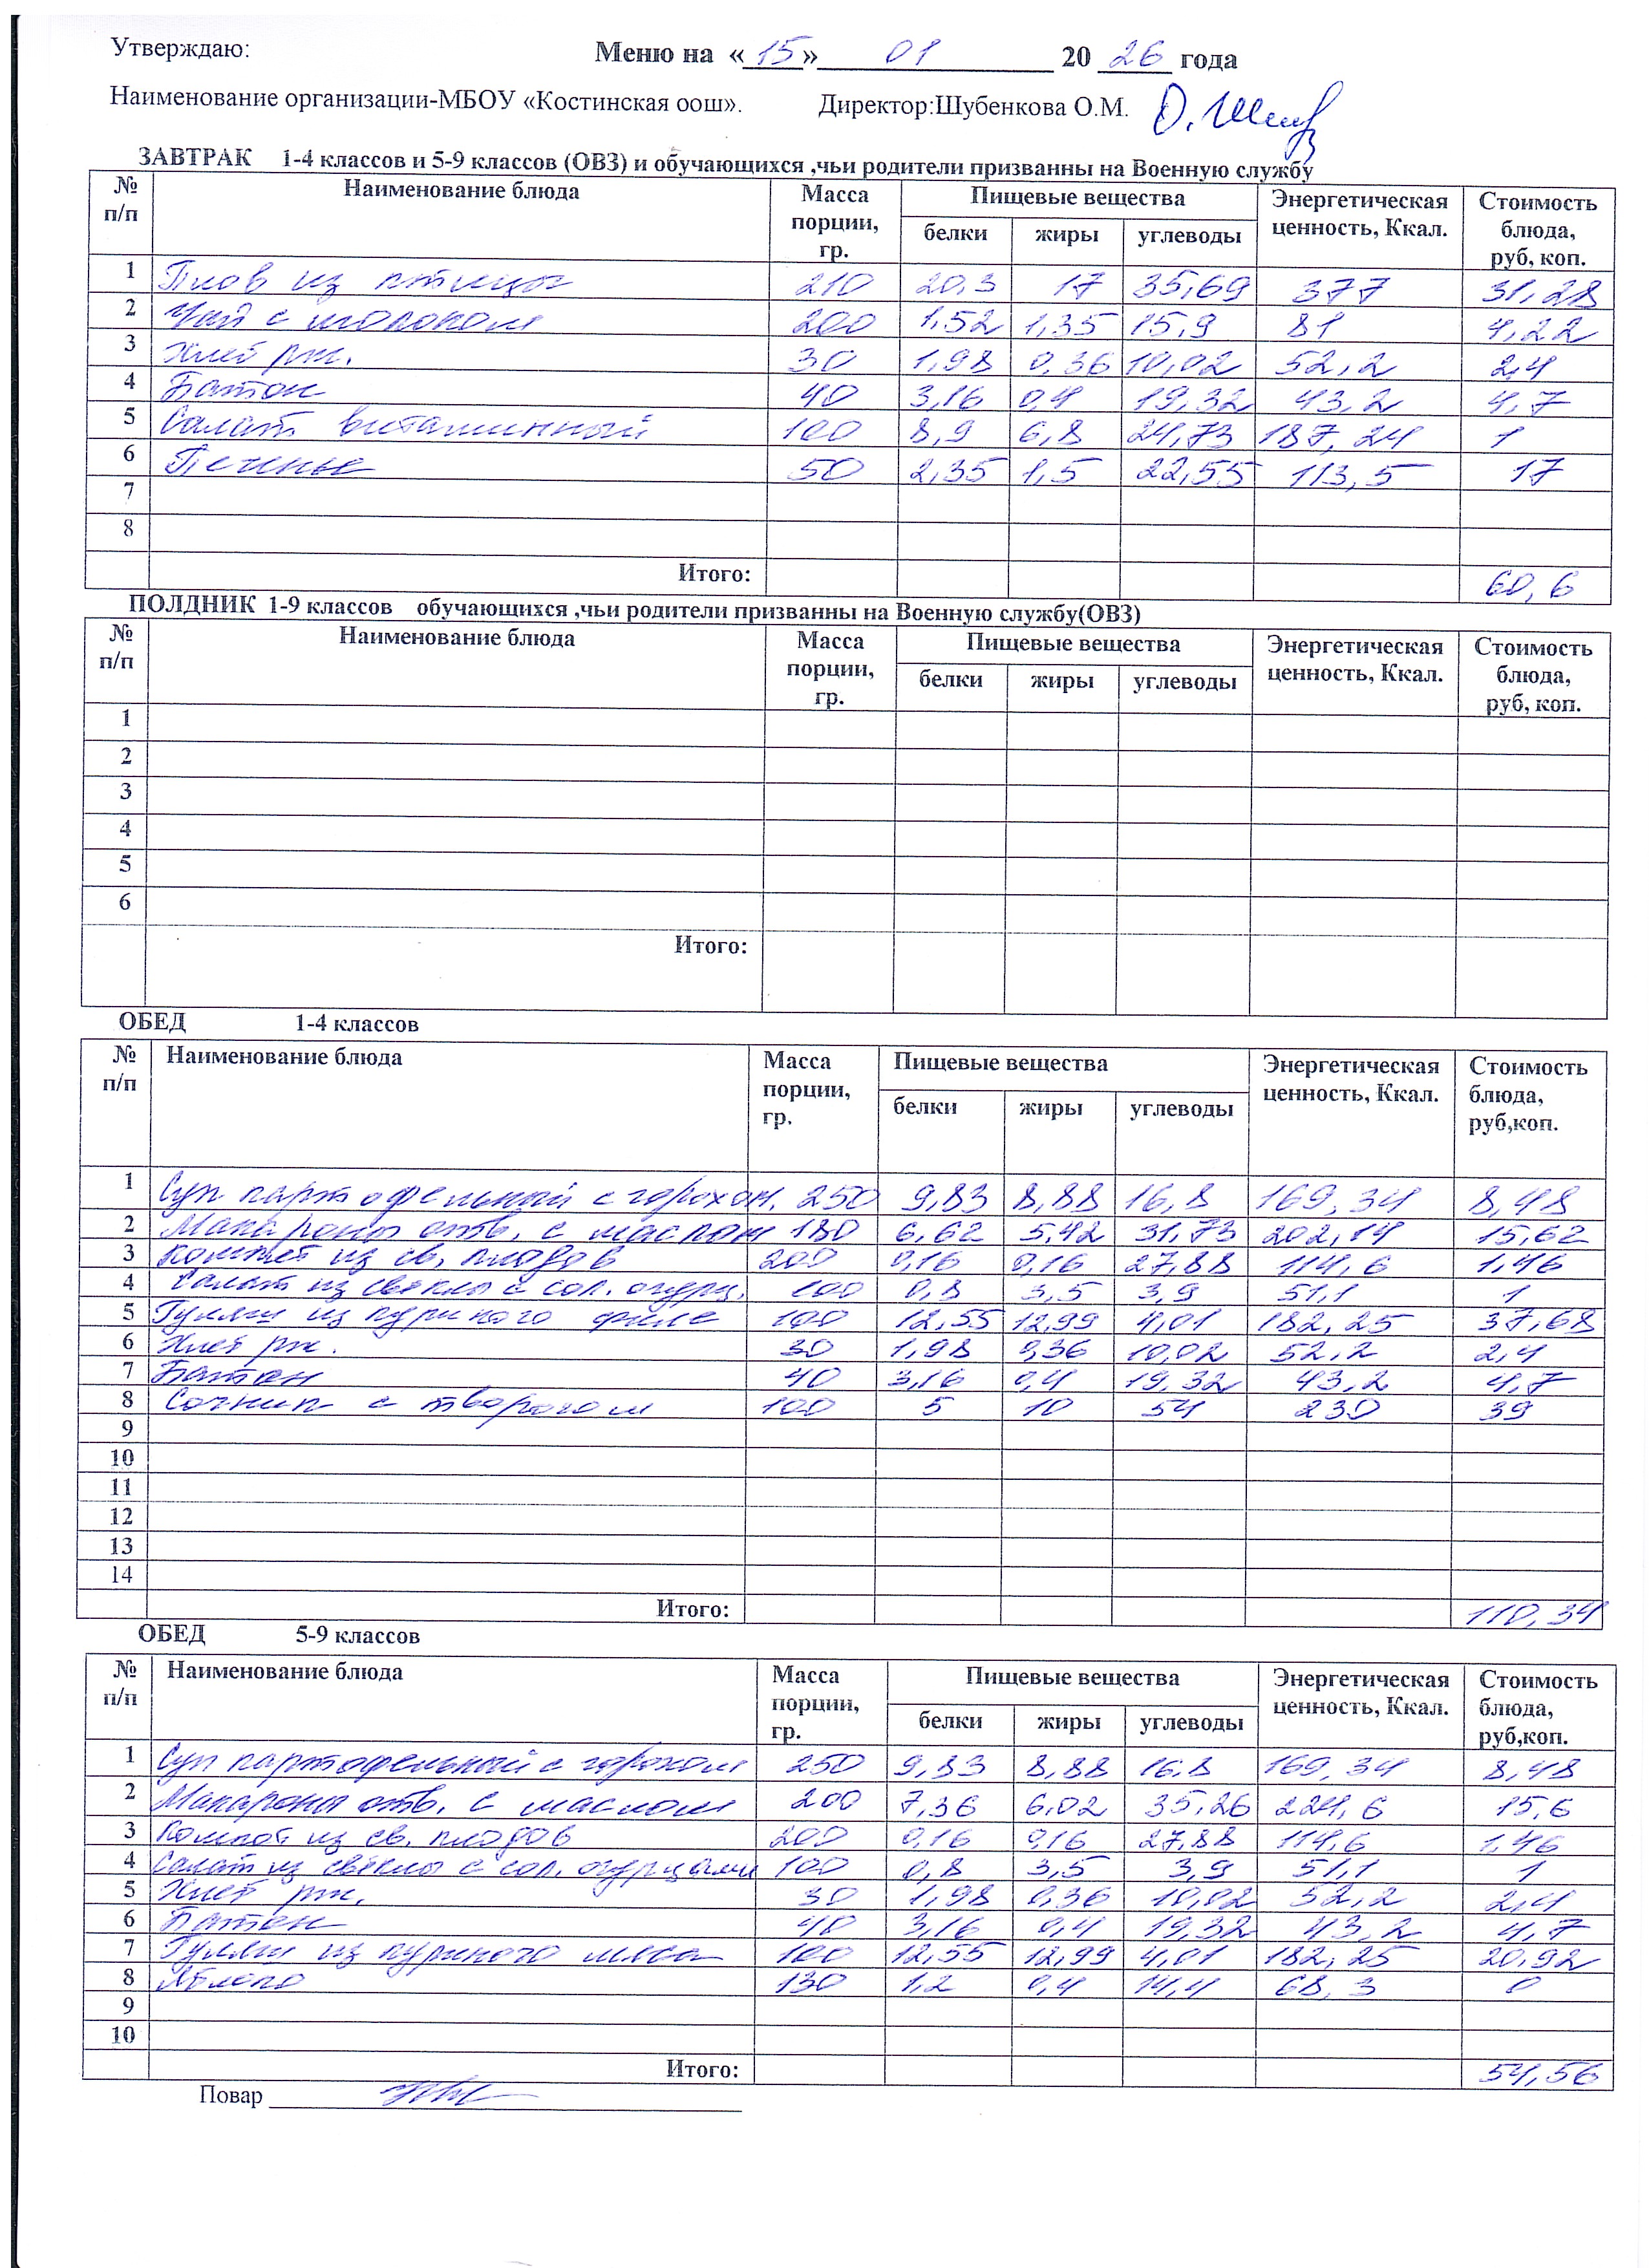 Утверждаю:
Меню на «15» 01 20 26 года
Наименование организации-МБОУ «Костинская оош». Директор:Шубенкова О.М.
ЗАВТРАК 1-4 классов и 5-9 классов (ОВЗ) и обучающихся ,чьи родители призванны на Военную службу
№ п/п Наименование блюда Масса порции, гр. Пищевые вещества Энергетическая ценность, Ккал. Стоимость блюда, руб, коп.
белки жиры углеводы
1 Плов из птицы 210 20,3 17 35,69 377 31,28
2 Чай с молоком 200 1,52 1,35 15,9 81 4,22
3 Хлеб рж. 30 1,98 0,36 10,02 52,2 2,4
4 Батон 40 3,16 0,4 19,32 43,2 4,7
5 Салат витаминный 100 8,9 6,8 24,73 187,24 1
6 Печенье 50 2,35 1,5 22,55 113,5 17
7
8
Итого: 60,6
ПОЛДНИК 1-9 классов обучающихся ,чьи родители призванны на Военную службу(ОВЗ)
№ п/п Наименование блюда Масса порции, гр. Пищевые вещества Энергетическая ценность, Ккал. Стоимость блюда, руб, коп.
белки жиры углеводы
1
2
3
4
5
6
Итого:
ОБЕД 1-4 классов
№ п/п Наименование блюда Масса порции, гр. Пищевые вещества Энергетическая ценность, Ккал. Стоимость блюда, руб,коп.
белки жиры углеводы
1 Суп картофельный с горохом. 250 9,83 8,88 16,8 169,34 8,48
2 Макароны отв. с маслом 180 6,62 5,42 31,73 202,14 15,62
3 Компот из св. плодов 200 0,16 0,16 27,88 114,6 1,46
4 Салат из свёклы с сол. огурц. 100 0,8 3,5 3,9 51,1 1
5 Гуляш из куриного филе 100 12,55 12,99 4,01 182,25 37,68
6 Хлеб рж. 30 1,98 0,36 10,02 52,2 2,4
7 Батон 40 3,16 0,4 19,32 43,2 4,7
8 Сочник с творогом 100 5 10 54 230 39
9
10
11
12
13
14
Итого: 110,34
ОБЕД 5-9 классов
№ п/п Наименование блюда Масса порции, гр. Пищевые вещества Энергетическая ценность, Ккал. Стоимость блюда, руб,коп.
белки жиры углеводы
1 Суп картофельный с горохом 250 9,83 8,88 16,8 169,34 8,48
2 Макароны отв. с маслом 200 7,36 6,02 35,26 224,6 15,6
3 Компот из св. плодов 200 0,16 0,16 27,88 114,6 1,46
4 Салат из свёклы с сол. огурцами 100 0,8 3,5 3,9 51,1 1
5 Хлеб рж. 30 1,98 0,36 10,02 52,2 2,4
6 Батон 40 3,16 0,4 19,32 43,2 4,7
7 Гуляш из куриного мяса 100 12,55 12,99 4,01 182,25 20,92
8 Яблоко 130 1,2 0,4 14,4 68,3 0
9
10
Итого: 54,56
Повар